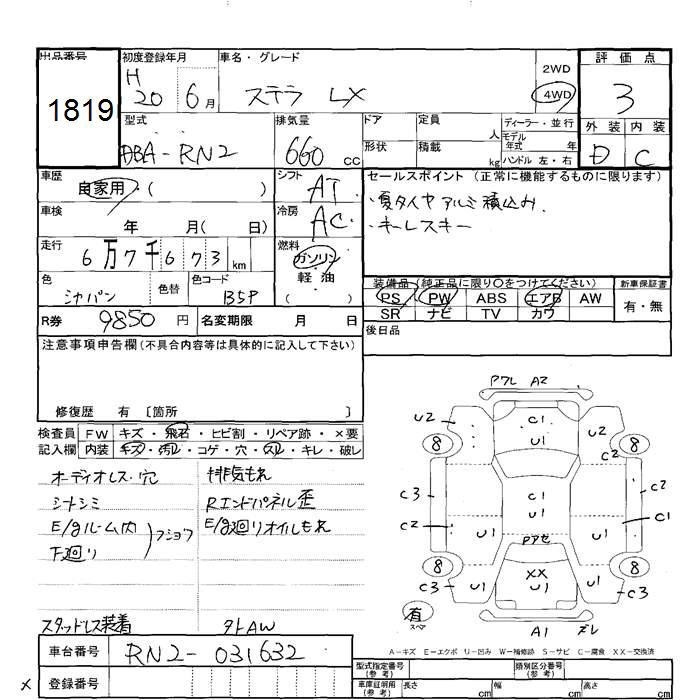 出品番号 初度登録年月 車名・グレード 評価点
1819
H 20 6月 ステラ LX
2WD
4WD
3
型式 排気量 ドア 定員 人 ディーラー・並行 外装 内装
DBA-RN2 660 cc
形状 積載 kg モデル年式 年 ハンドル 左・右
D C
車歴 自家用・( ) シフト AT
セールスポイント(正常に機能するものに限ります)
・夏タイヤアルミ積込み.
・キーレスキー
車検 年 月( 日) 冷房 AC
走行 6万7千673 km 燃料 ガソリン
軽油
( )
色 シャパン 色替 色コード B5P
装備品(純正品に限り○をつけてください) 新車保証書
PS PW ABS エアB AW 有・無
SR ナビ TV カワ
R券 9850 円 名変期限 月 日
後日品
注意事項申告欄(不具合内容等は具体的に記入して下さい)
修復歴 有 〔箇所 〕
検査員 FW キズ・飛石・ヒビ割・リペア跡・×要
記入欄 内装 キズ・汚れ・コゲ・穴・スレ・キレ・破レ
オーディオレス・穴 排気もれ
シートシミ Rエンドパネル歪
E/gルーム内 E/g廻りオイルもれ
下廻り フショク
スタッドレス装着 タトAW
アワレ A2
U2 C1 U2
8 U1 8
C3 C1 C2
C2 U1 U1 U1 C1
Pアセ
8 XX 8
C3 U1 U1 U1 C3
有
スペア
A1 ズレ
A-キズ E-エクボ U-凹み W-補修跡 S-サビ C-腐食 XX-交換済
車台番号 RN2-031632
型式指定番号(参考) 類別区分番号(参考)
× 登録番号
車庫証明用(参考) 長さ cm 幅 cm 高さ cm